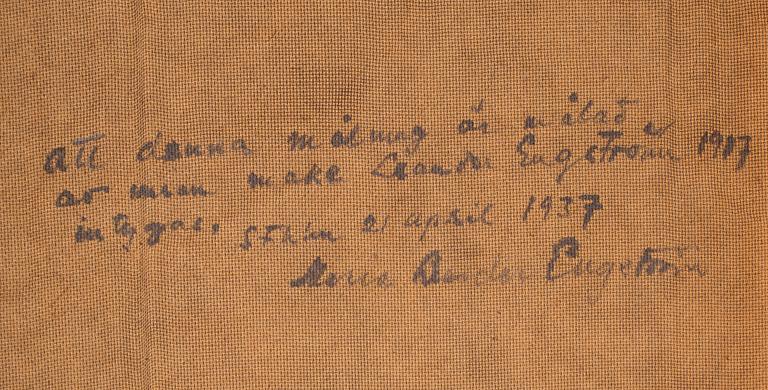 att denna målning är målad
av min make Leander Engström 1917
intygas. Sthlm 21 april 1937
Maria Leander Engström